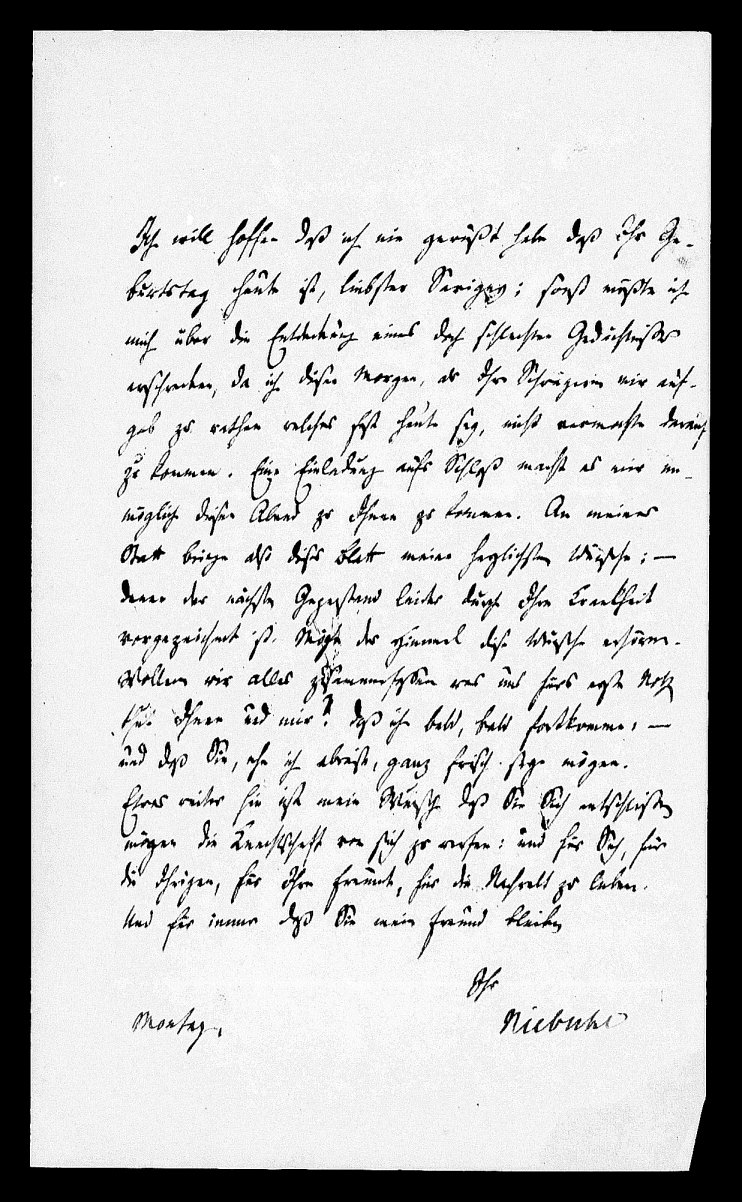 Ich will hoffen daß ich nie gewußt habe daß Ihr Ge-
burtstag heute ist, liebster Savigny; sonst müßte ich
mich über die Entdeckung eines sehr schlechten Gedächtnisses
erschrecken, da ich diesen Morgen, als Ihre Schwägerin mir auf-
gab zu rathen welches Fest heute sey, nicht vermochte darauf
zu kommen. Eine Einladung aufs Schloß macht es mir un-
möglich diesen Abend zu Ihnen zu kommen. An meiner
Statt bringe also dieß Blatt meine herzlichsten Wünsche; —
deren der nächste Gegenstand leider durch Ihre Krankheit
vorgezeichnet ist. Möge der Himmel diese Wünsche erhören.
Wollen wir alles zusammenfassen was uns fürs erste Noth
thut Ihnen und mir? daß ich bald, bald fortkomme; —
und daß Sie, ehe ich abreise, ganz frisch seyn mögen.
Etwas weiter hin ist mein Wunsch daß Sie Sich entschließen
mögen die Knechtschaft von sich zu werfen: und für Sich, für
die Ihrigen, für Ihre Freunde, für die Nachwelt zu leben.
Und für immer daß Sie mein Freund bleiben
Ihr
Montag.
Niebuhr